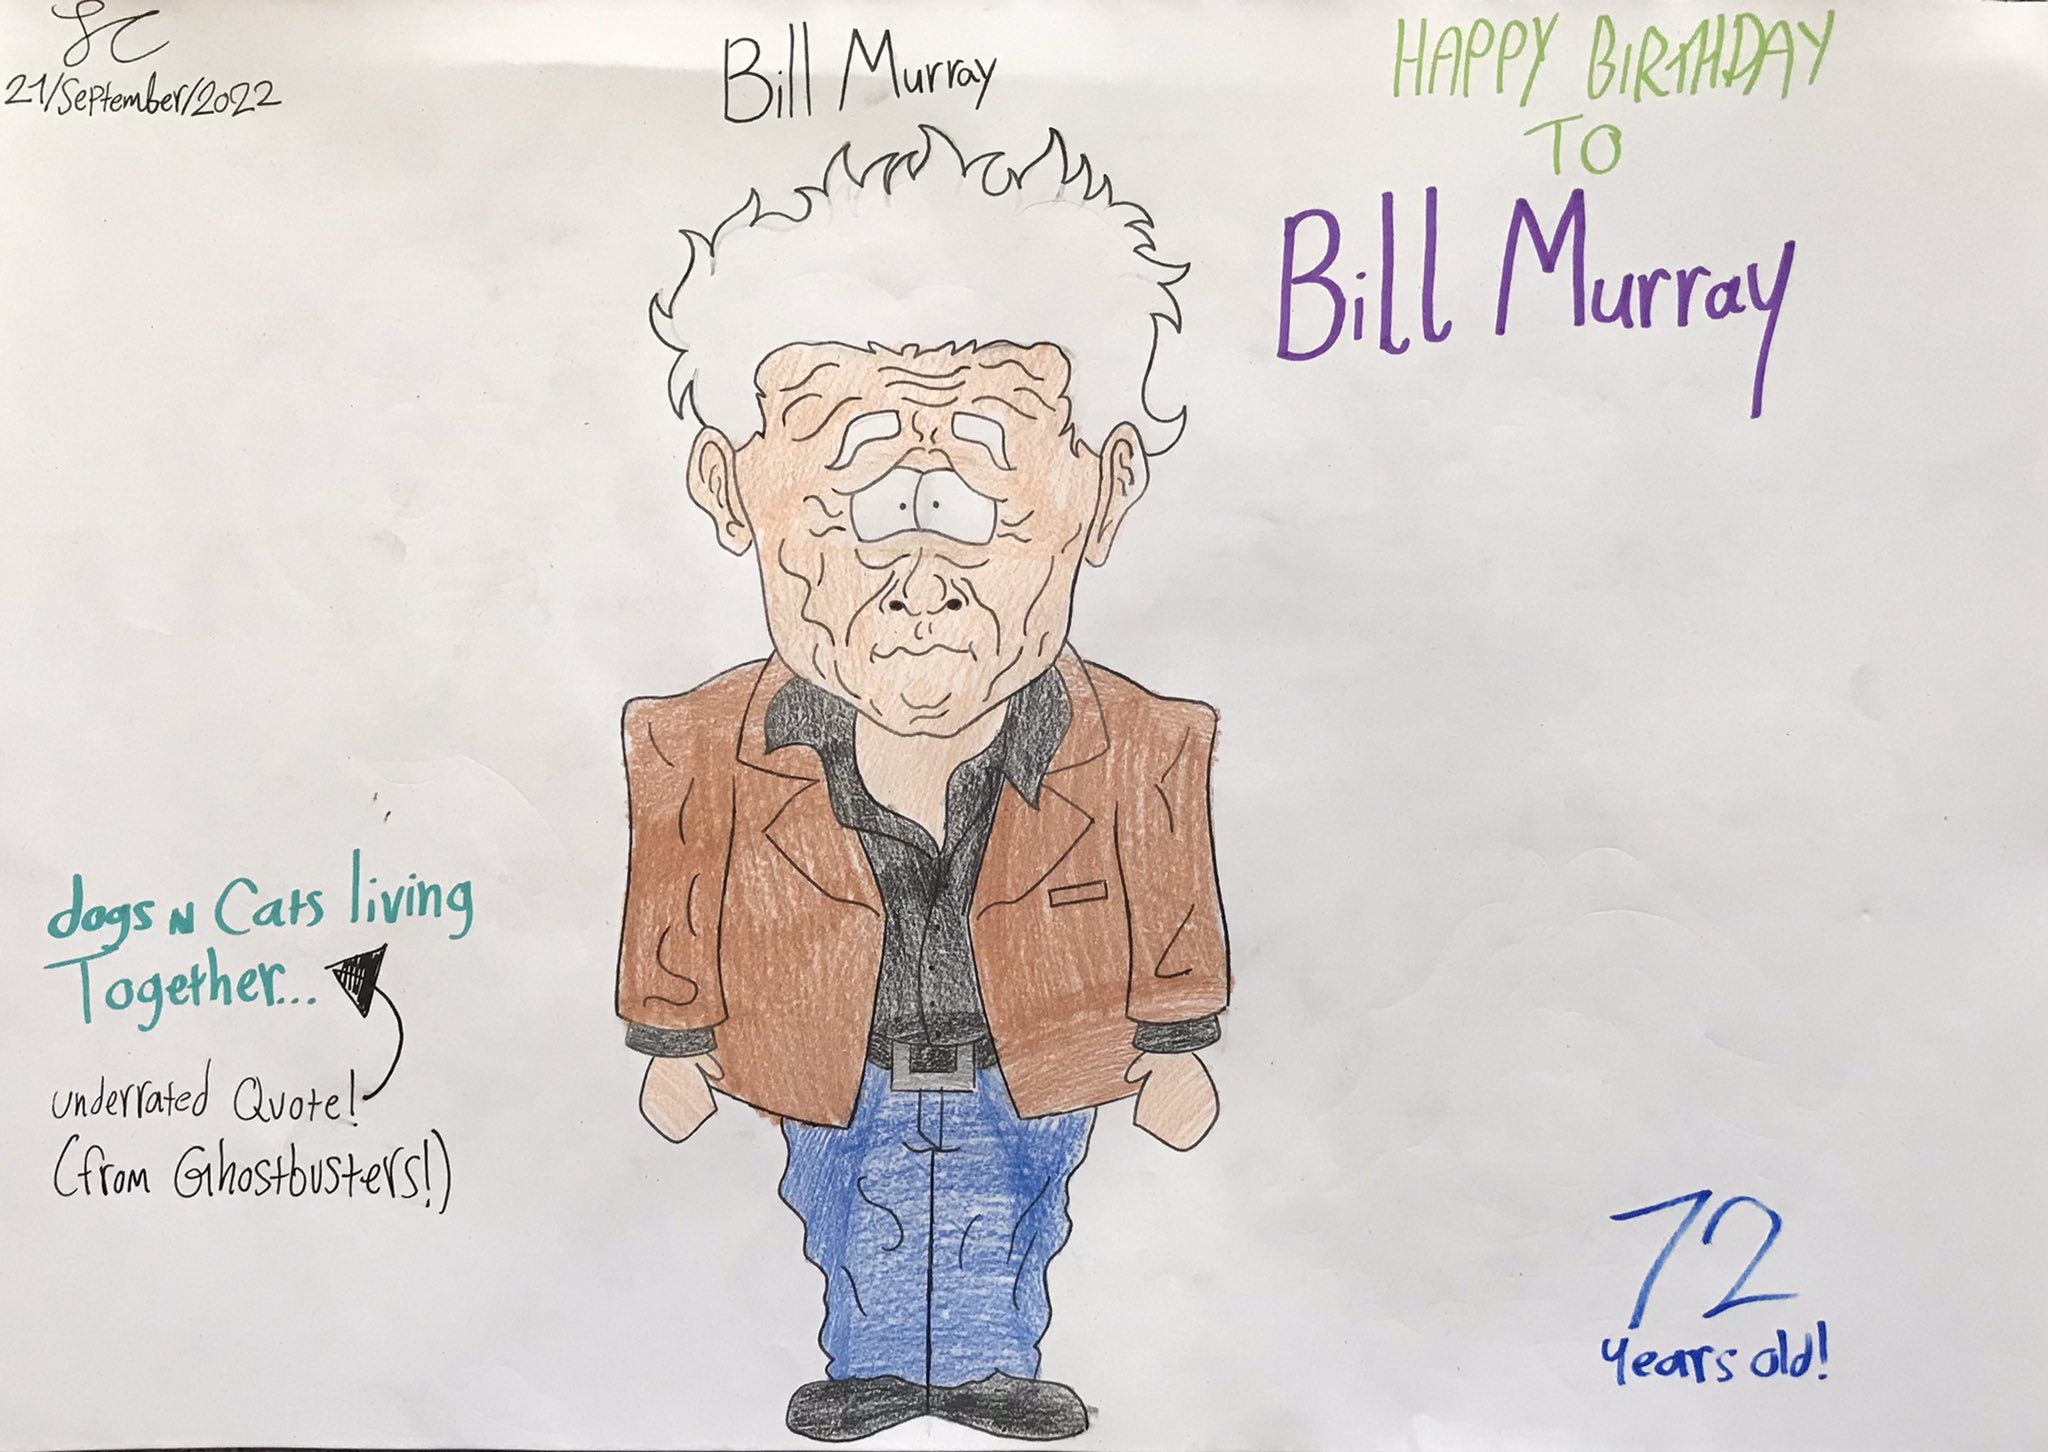 SC
21/September/2022
Bill Murray
HAPPY BIRTHDAY
TO
Bill Murray
dogs N Cats living
Together...
underrated Quote!
(from Ghostbusters!)
72
years old!